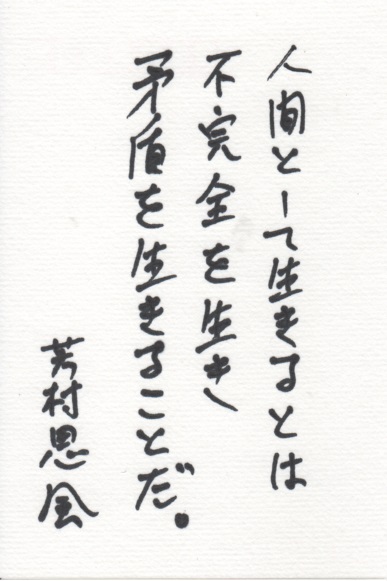 人間として生きるとは
不完全を生き
矛盾を生きることだ。
芳村思風